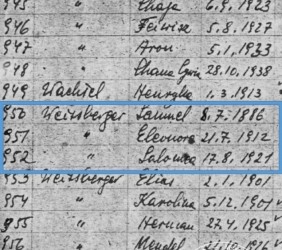 945 " Chaja 6.9.1923
946 " Feiwisz 5.8.1927
947 " Aron 5.1.1933
948 " Chana 28.10.1938
949 Wachtel Henryka 1.3.1913
950 Weitsberger Samuel 8.7.1886
951 " Eleonora 21.7.1912
952 " Salomea 17.8.1921
953 Weitsberger Elias 2.1.1901
954 " Karolina 5.12.1901
955 " Herman 27.4.1925
956 " Mendel